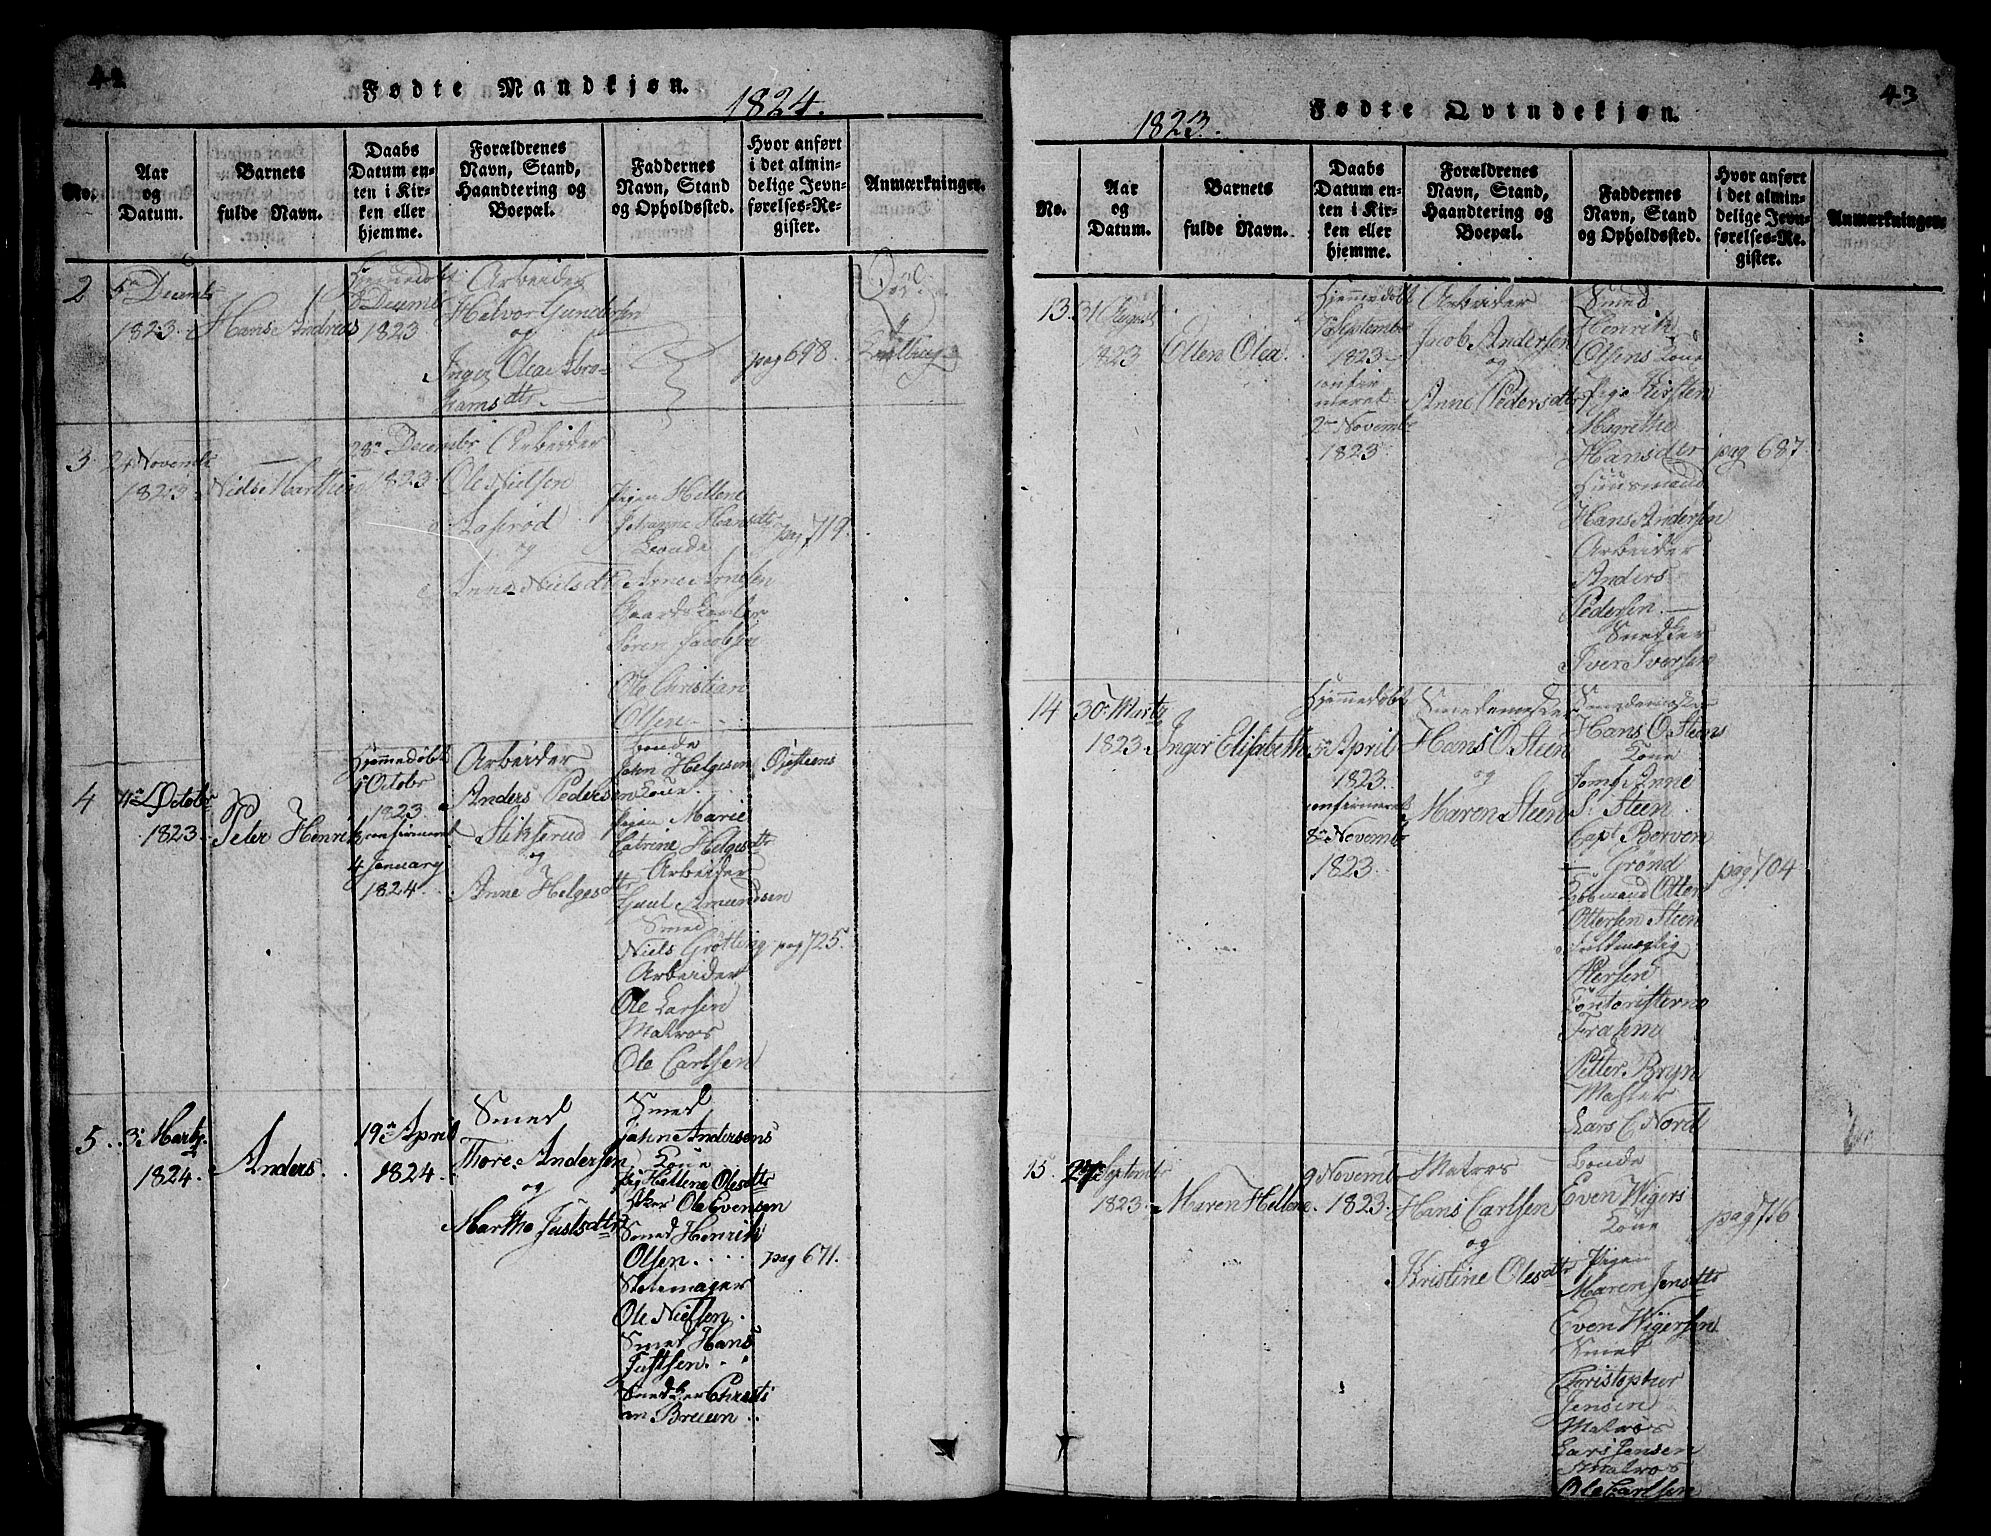 42
Fødte Mandkjøn.
1824.
No.
Aar
og
Datum.
Barnets
fulde Navn.
Daabs
Datum en-
ten i Kir-
ken eller
hjemme.
Forældrenes
Navn, Stand,
Haandtering og
Boepæl.
Faddernes
Navn, Stand
og Opholdssted.
Hvor anført
i det almin-
delige Jevn-
førelses-Re-
gister.
Anmærkninger.
2
5te Decembr
1823.
Hans Andreas
Hjemmedøbt
Decemb
1823
Arbeider
Halvor Gundersen
og
Inger Olea Abra-
hamsdtr
pag 698.
3
24 Novembr
1823
Niels Marthin
28de Decembr
1823
Arbeider
Ole Nielsen
og
Anne Nielsdtr
Pigen Hellene
Johanne Hansdtr
Bonde
Arne Arnesen
Søren Jacobsen
Ole Christian
Olsen
pag 719.
4
Octobr
1823.
Peter Henrik
Hjemmedøbt
Octobr
1823.
confirmeret
4 January
1824.
Arbeider
Anders Pedersen
Stikserud
og
Anne Helgesdtr
Bonde
John Helgesen
Kone
Pigen Marie
Catrine Helgesdtr
Arbeider
Gaul Amundsen
Smed
Niels Grøtting
Arbeider
Ole Larsen
Matros
Ole Carlsen
pag 725.
5
3de Martz
1824.
Anders.
19de April
1824.
Smed
Thore Andersen
og
Marthe Justsdtr
Smed
John Andersens
Kone
Pig Hellene Olesdtr
Ole Evensen
Smed Henrik
Olsen.
Ole Nielsen.
Smed Hans
Justsen.
Snedker Christi
an Bruun.
pag 671.
43
Fødte Qvindekjøn.
1823.
No.
Aar
og
Datum.
Barnets
fulde Navn.
Daabs
Datum en-
ten i Kir-
ken eller
hjemme.
Forældrenes
Navn, Stand,
Haandtering og
Boepæl.
Faddernes
Navn, Stand
og Opholdssted.
Hvor anført
i det almin-
delige Jevn-
førelses-Re-
gister.
Anmærkninger.
13.
31 August
1823
Ellen Olea.
Hjemmedøbt
September
1823
confir
meret
2den Novembr
1823
Arbeider
Jacob Andersen
og
Anne Pedersdtr
Smed
Henrik
Olsens Kone
Pige Kirsten
Marethe
Hansdtr
Huusmand
Hans Andersen
Arbeider
Anders
Pedersen
Snedker
Iver Iversen
pag 687.
14
30 Martz
1823.
Inger Elisabeth
Hjemmedøbt
5te April
1823.
confirmeret
8de Novembr
1823.
Hans O Steen
og
Maren Steen
Hans O. Steens
Kone
Jomf: Anne
S. Steen
Capt. Borven
Grønd
Kjøbmand Otter
Ottersen Steen
Petersen
Petter Bryn
Lars C Nord
pag 704
15.
Septembr
1823.
Maren Hellene
9 Novemb
1823.
Matros
Hans Carlsen
og
Kristine Olesdtr
Bonde
Even Wigers
Kone
Pigen
Maren Jensdtr
Even Wigersen
Smed
Christopher
Jensen
Matros
Lars Jensen
Matros
Ole Carlsen
pag 716